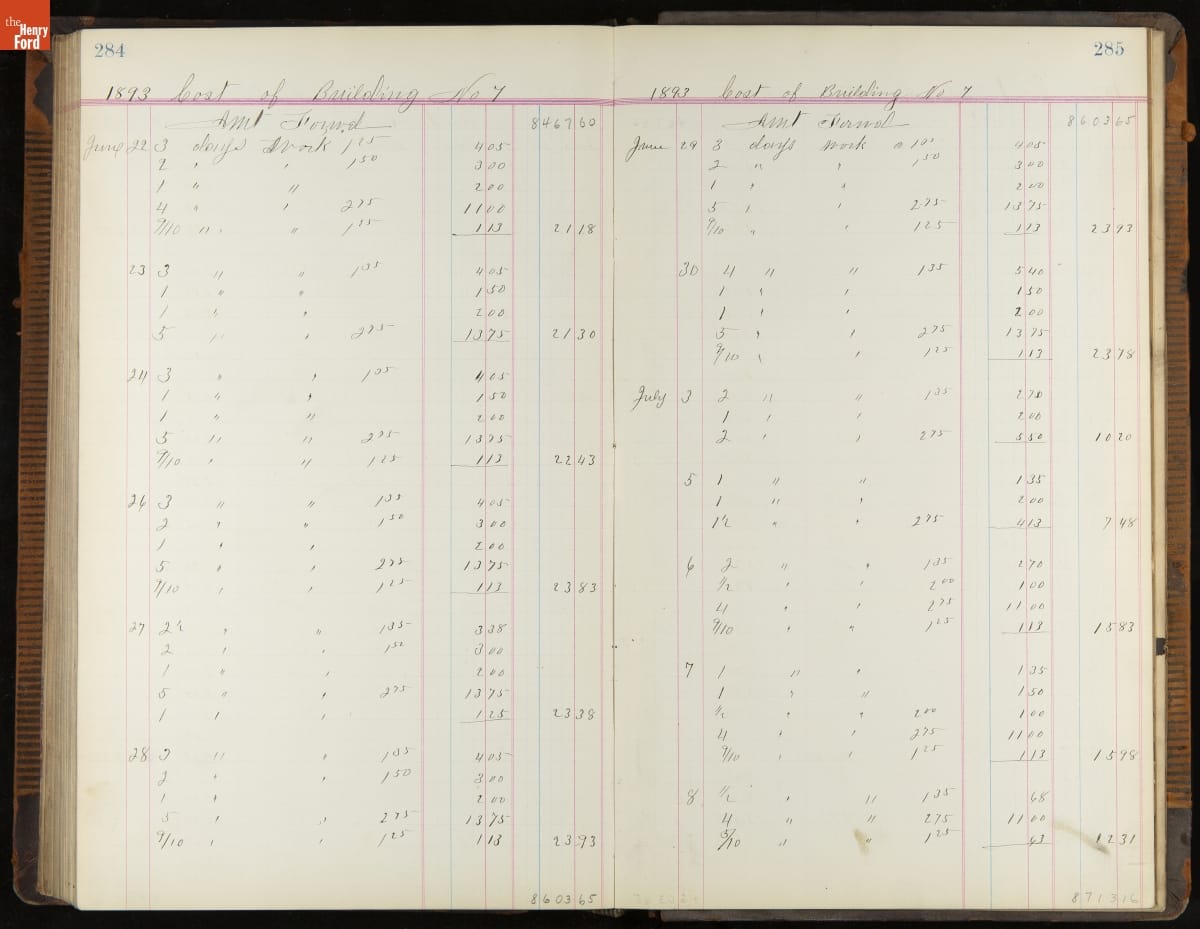 the Henry Ford
284
1893 Cost of Building No 7
Amt Forwd 8467 60
June 22 3 days Work 1 35 4 05
2 " " 1 50 3 00
1 " " 2 00
4 " " 2 75 11 00
9/10 " " 1 25 1 13 21 18
23 3 " " 1 35 4 05
1 " " 1 50
1 " " 2 00
5 " " 2 75 13 75 21 30
24 3 " " 1 35 4 05
1 " " 1 50
1 " " 2 00
5 " " 2 75 13 75
9/10 " " 1 25 1 13 22 43
26 3 " " 1 35 4 05
2 " " 1 50 3 00
1 " " 2 00
5 " " 2 75 13 75
9/10 " " 1 25 1 13 23 83
27 2½ " " 1 35 3 38
2 " " 1 50 3 00
1 " " 2 00
5 " " 2 75 13 75
1 " " 1 25 23 38
28 3 " " 1 35 4 05
2 " " 1 50 3 00
1 " 2 00
5 " " 2 75 13 75
9/10 " " 1 25 1 13 23 93
8603 65
285
1893 Cost of Building No 7
Amt Forwd 8603 65
June 29 3 days work 1 35 4 05
2 " " 1 50 3 00
1 " " 2 00
5 " " 2 75 13 75
9/10 " " 1 25 1 13 23 93
30 4 " " 1 35 5 40
1 " " 1 50
1 " " 2 00
5 " " 2 75 13 75
9/10 " " 1 25 1 13 23 78
July 3 2 " " 1 35 2 70
1 " " 2 00
2 " " 2 75 5 50 10 20
5 1 " " 1 35
1 " " 2 00
1½ " " 2 75 4 13 7 48
6 2 " " 1 35 2 70
1/2 " " 2 00 1 00
4 " " 2 75 11 00
9/10 " " 1 25 1 13 15 83
7 1 " " 1 35
1 " " 1 50
1/2 " " 2 00 1 00
4 " " 2 75 11 00
9/10 " " 1 25 1 13 15 98
8 1/2 " " 1 35 68
4 " " 2 75 11 00
5/10 " " 1 25 63 12 31
8713 16